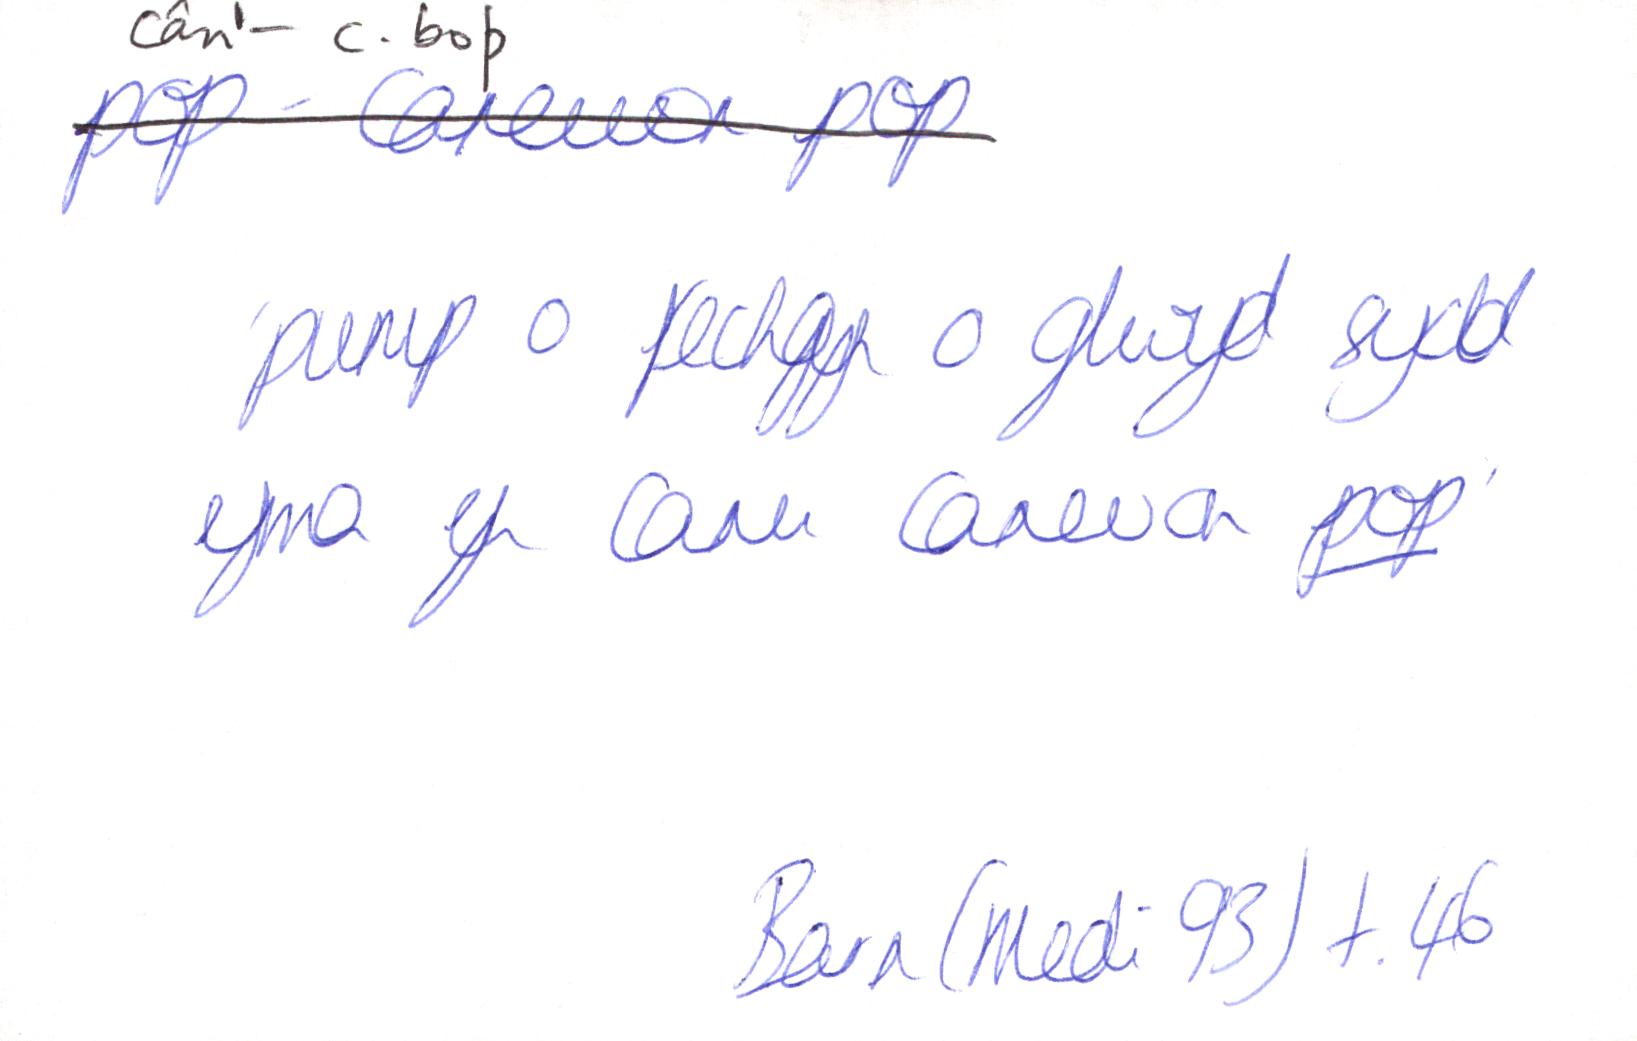 cân¹ – c. bop
pop - caneuon pop
'pump o fechgyn o glwyd sydd
yma yn canu caneuon pop'
Barn (Medi 93) t. 46